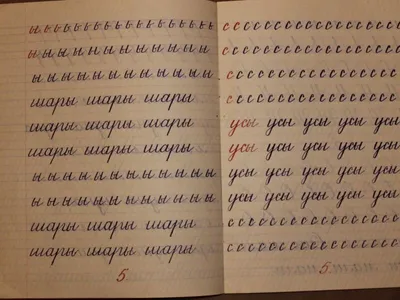 ы ы ы ы ы ы ы ы ы ы ы ы ы
ы ы ы ы ы ы ы ы ы ы ы ы
шары шары шары
шары шары шары
шары шары шары
ы ы ы ы ы ы ы ы ы ы ы ы ы
ы ы ы ы ы ы ы ы ы ы ы ы ы
шары шары шары
шары шары шары
5.
с с с с с с с с с с с с с с с с с
с с с с с с с с с с с с с с с с с
с с с с с с с с с с с с с с с с с
с с с с с с с с с с с с с с с с с
усы усы усы усы усы
усы усы усы усы усы
усы усы усы усы усы
усы усы усы усы усы
с с с с с с с с с с с с с с с с с
с с с с с с с с с с с с с с с с с
5.